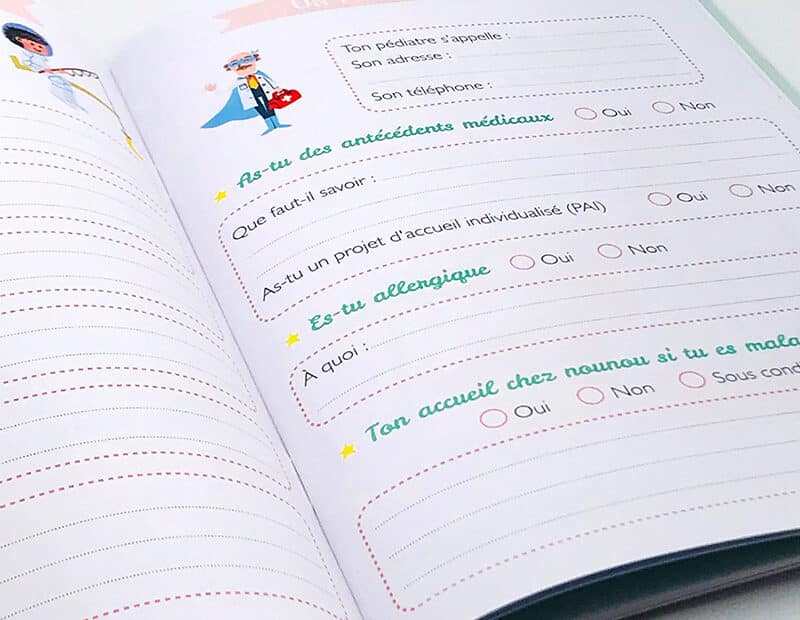 Ton pédiatre s'appelle :
Son adresse :
Son téléphone :
As-tu des antécédents médicaux Oui Non
Que faut-il savoir :
As-tu un projet d'accueil individualisé (PAI) Oui Non
Es-tu allergique Oui Non
À quoi :
Ton accueil chez nounou si tu es mala
Oui Non Sous cond